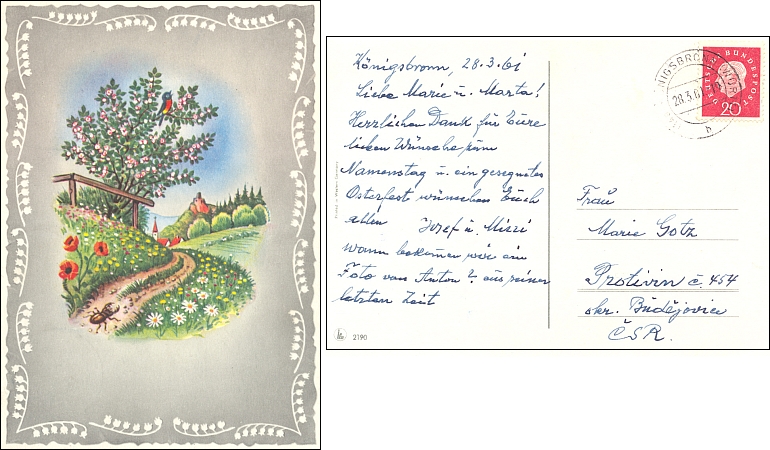 Königsbronn, 28.3.61
Liebe Marie u. Marta!
Herzlichen Dank für Eure
lieben Wünsche zum
Namenstag u. ein gesegnetes
Osterfest wünschen Euch
allen Josef u. Mizzi
wann bekommen wir ein
Foto von Anton? aus seiner
letzten Zeit
2190
DEUTSCHE BUNDESPOST
20
28.3.61
b
Frau
Marie Gotz
Protivin č. 454
okr. Budějovice
ČSR.